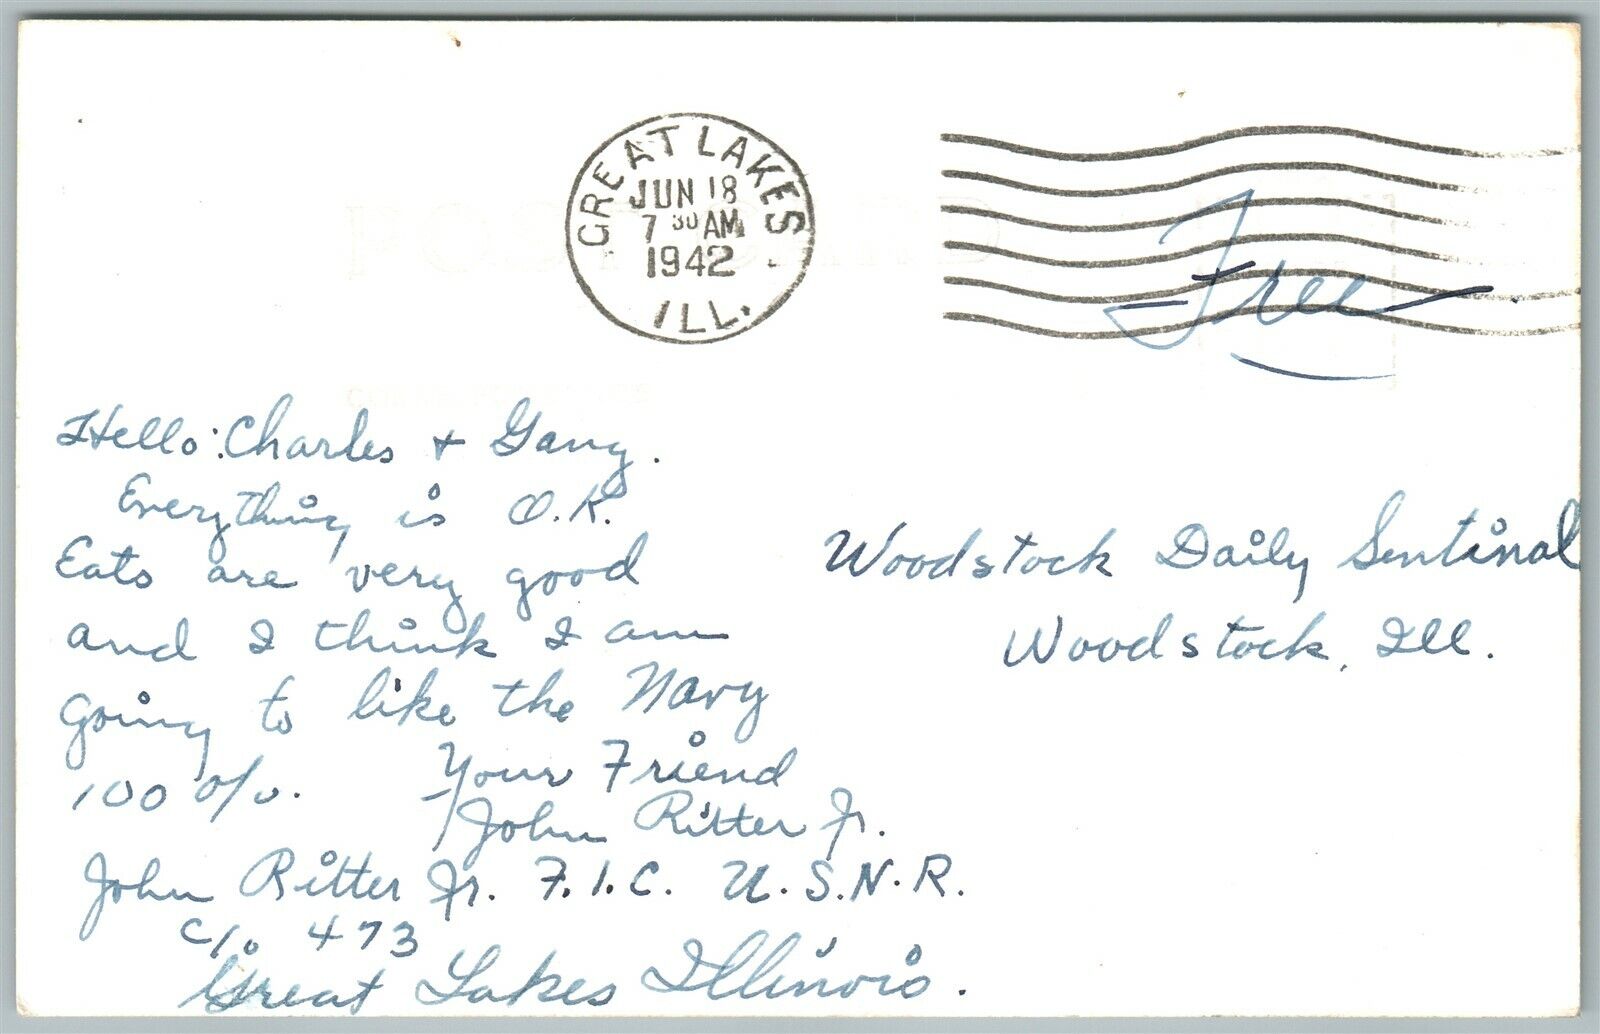 GREAT LAKES
JUN 18
7 30 AM
1942
ILL.
Free
POST CARD
CORRESPONDENCE
Hello: Charles + Gang.
Everything is O.K.
Eats are very good
and I think I am
going to like the Navy
100 o/o. Your Friend
John Ritter Jr.
John Ritter Jr. F.1.C. U.S.N.R.
c/o 473
Great Lakes Illinois.
Woodstock Daily Sentinal
Woodstock, Ill.